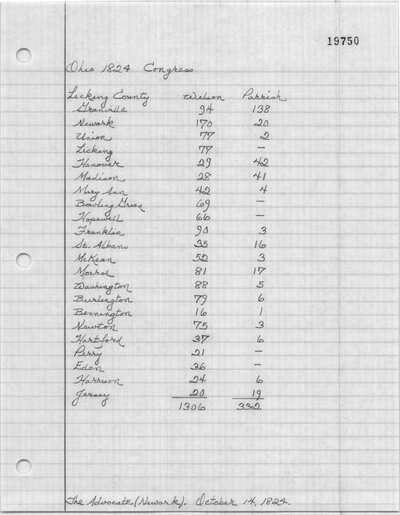 19750
Ohio 1824 Congress
Licking County Wilson Parrish
Granville 94 138
Newark 170 20
Union 77 2
Licking 77 —
Hanover 29 42
Madison 28 41
Mary Ann 42 4
Bowling Green 69 —
Hopewell 66 —
Franklin 90 3
St. Albans 35 16
McKean 52 3
Monroe 81 17
Washington 88 5
Burlington 79 6
Bennington 16 1
Newton 75 3
Hartford 37 6
Perry 21 —
Eden 36 —
Harrison 24 6
Jersey 20 19
1306 332
The Advocate (Newark). October 14, 1824.